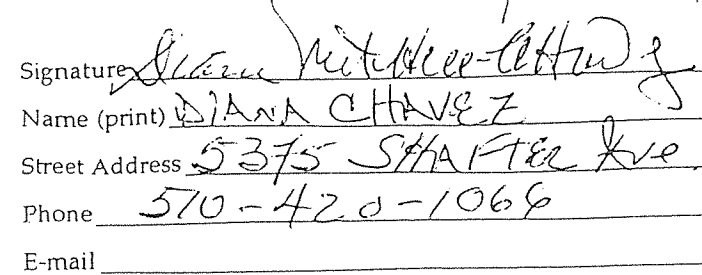 Signature
Name (print) DIANA CHAVEZ
Street Address 5375 SHAFTER Ave
Phone 510-420-1066
E-mail